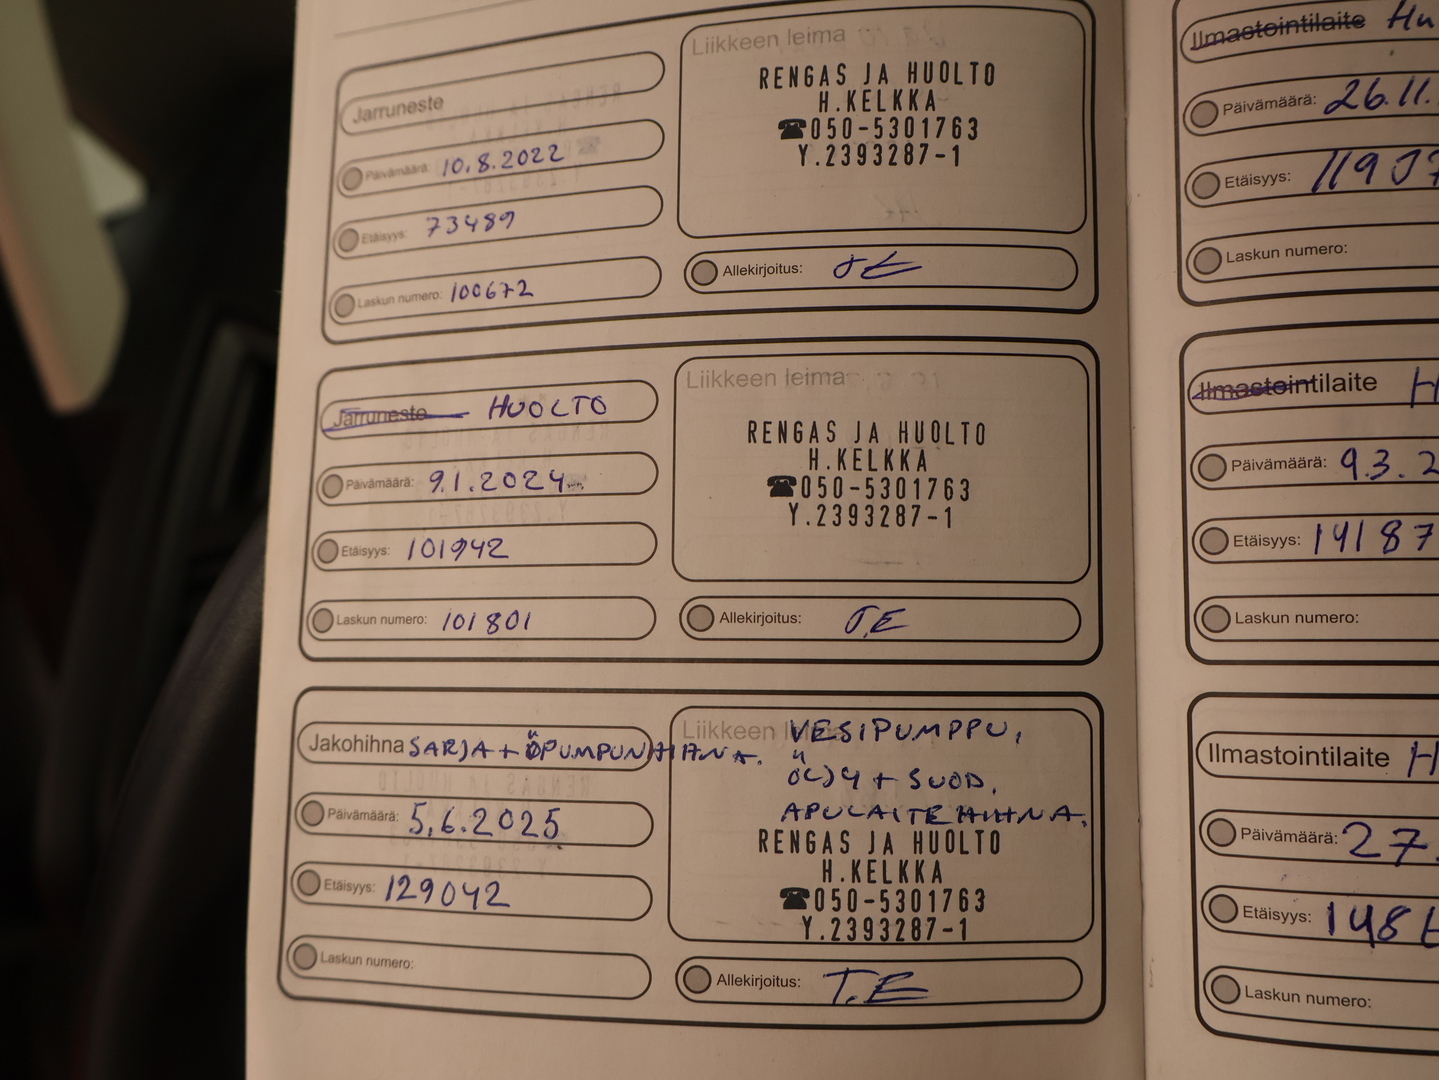 Jarruneste
Päivämäärä: 10.8.2022
Etäisyys: 73489
Laskun numero: 100672
Liikkeen leima
RENGAS JA HUOLTO
H.KELKKA
☎050-5301763
Y.2393287-1
Allekirjoitus:
Jarruneste HUOLTO
Päivämäärä: 9.1.2024
Etäisyys: 101942
Laskun numero: 101801
Liikkeen leima
RENGAS JA HUOLTO
H.KELKKA
☎050-5301763
Y.2393287-1
Allekirjoitus:
Jakohihna SARJA + ÖPUMPUN HIHNA.
Päivämäärä: 5.6.2025
Etäisyys: 129042
Laskun numero:
Liikkeen
VESIPUMPPU,
ÖLJY + SUOD.
APULAITEHIHNA.
RENGAS JA HUOLTO
H.KELKKA
☎050-5301763
Y.2393287-1
Allekirjoitus: T.E
Ilmastointilaite Hu
Päivämäärä: 26.11.
Etäisyys: 11907
Laskun numero:
Ilmastointilaite H
Päivämäärä: 9.3.2
Etäisyys: 14187
Laskun numero:
Ilmastointilaite H
Päivämäärä: 27.
Etäisyys: 148
Laskun numero: